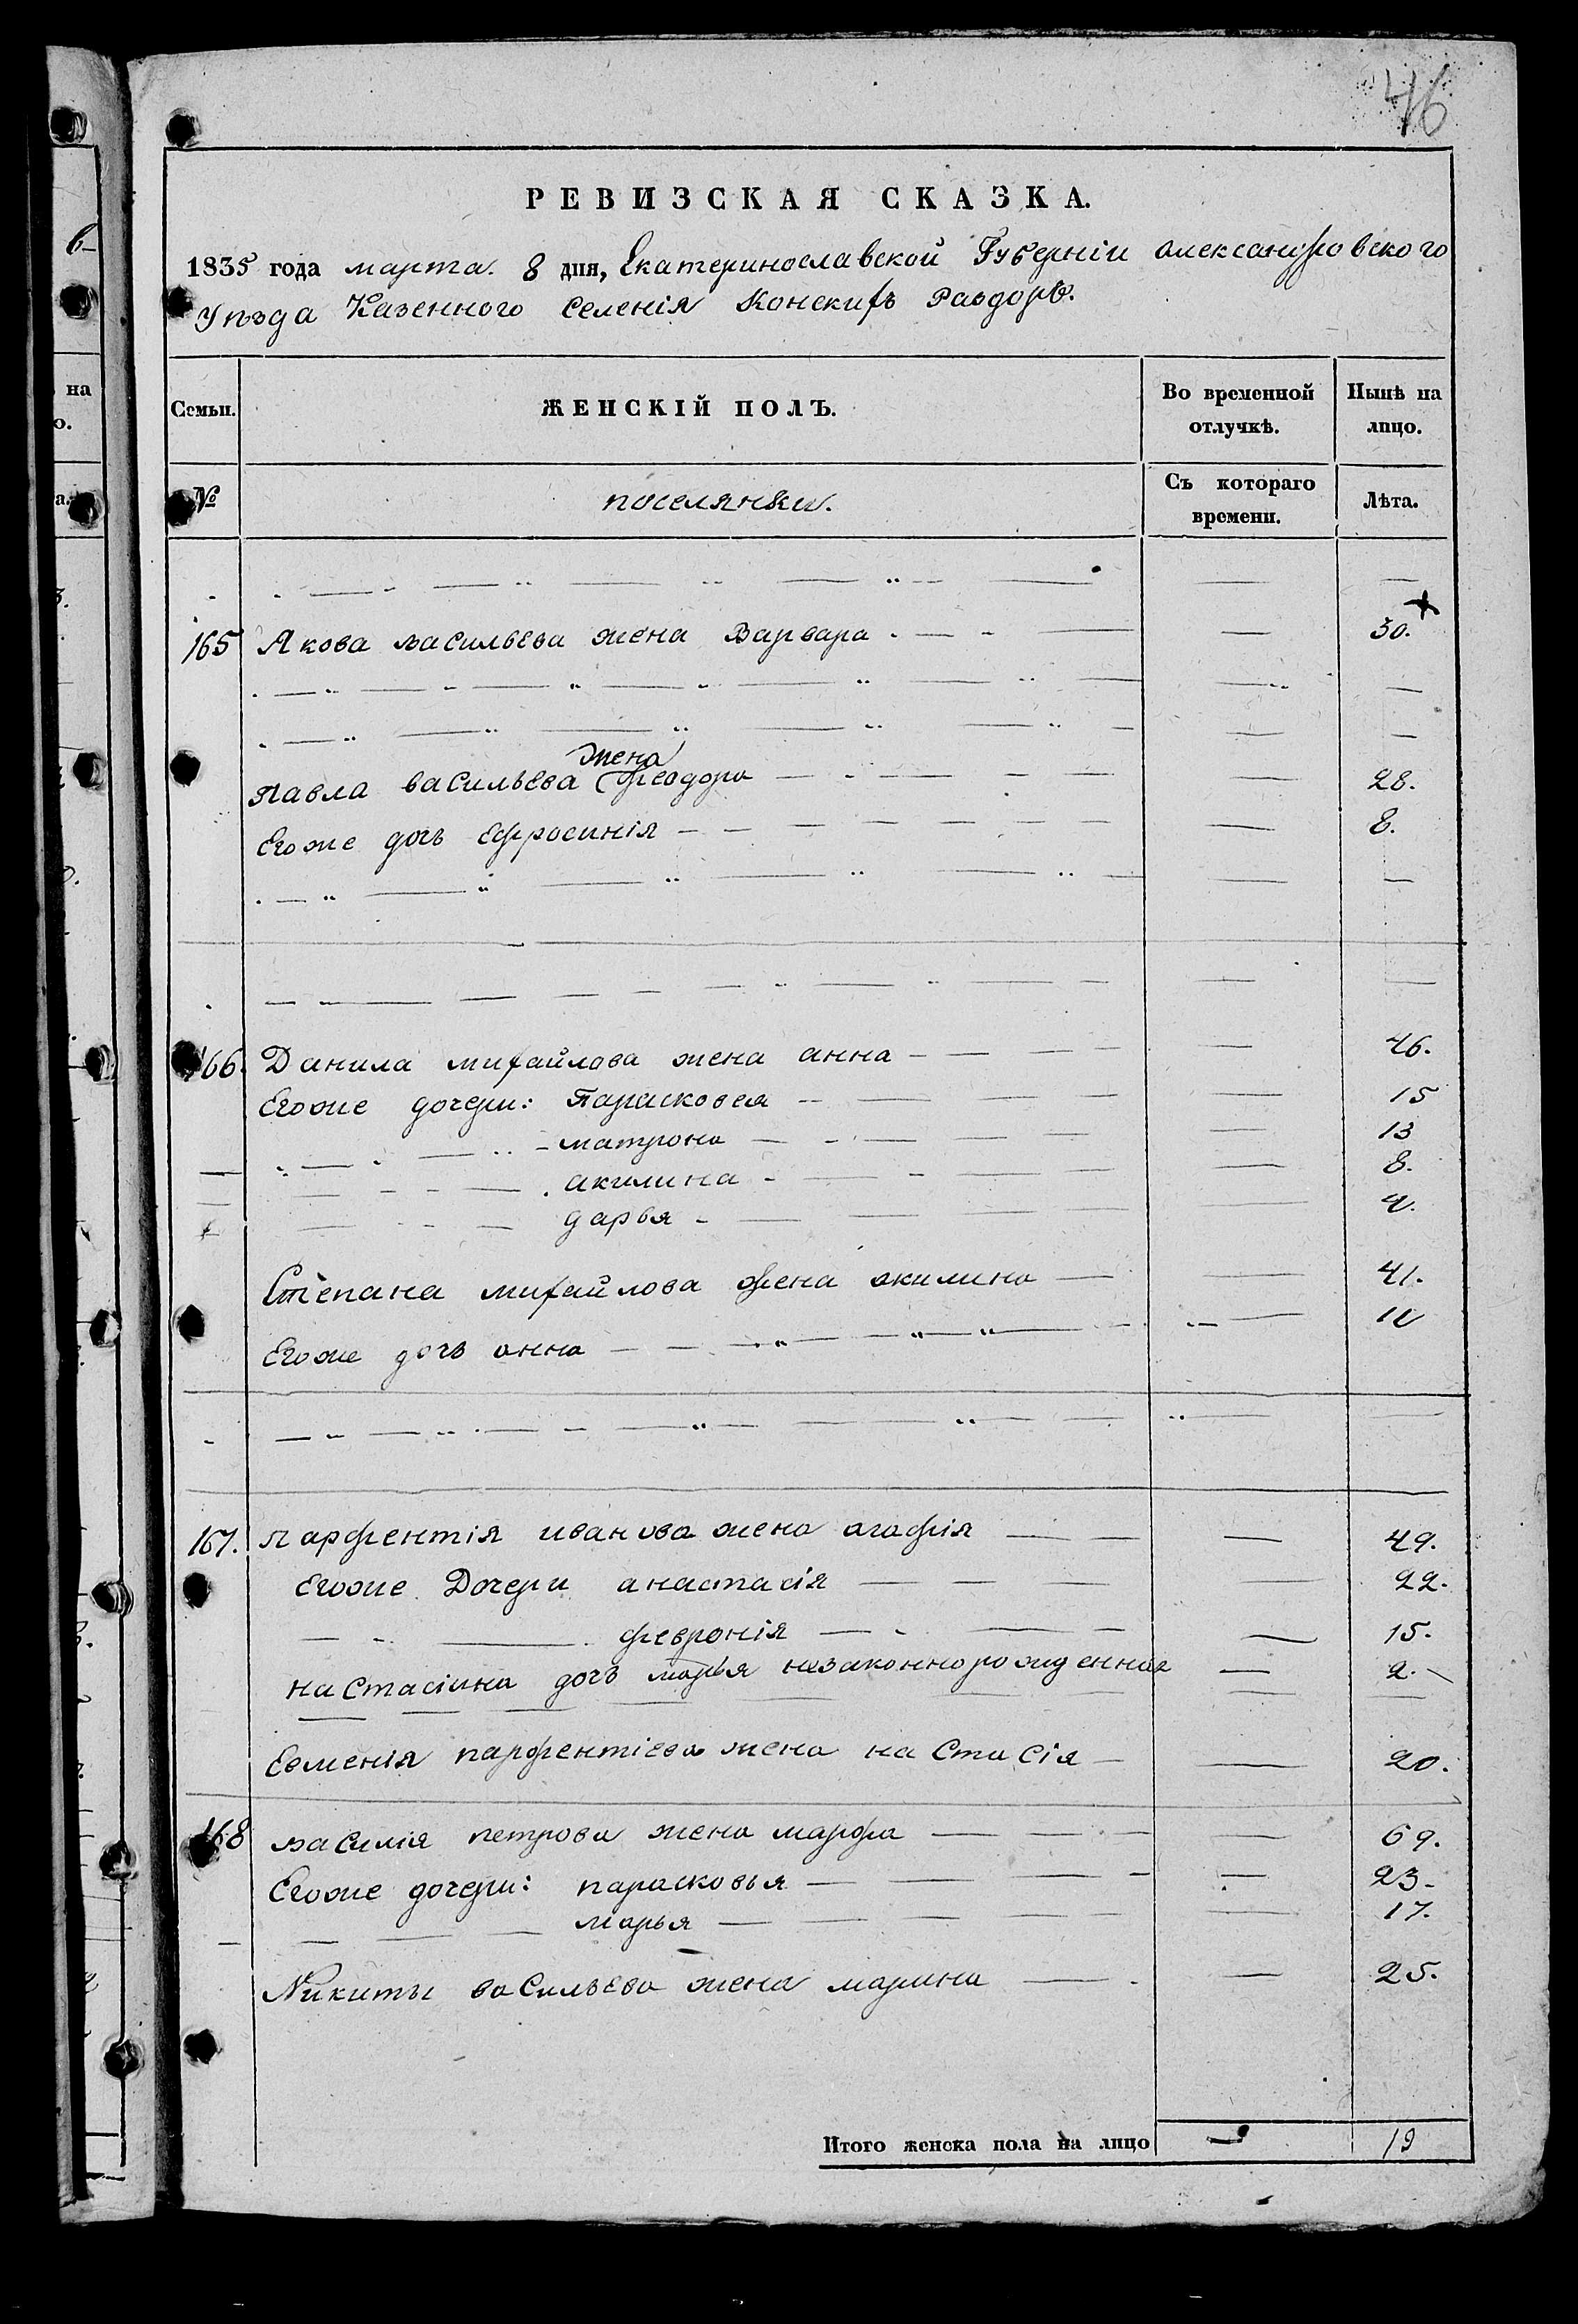 46
РЕВИЗСКАЯ СКАЗКА.
1835 года марта 8 дня, Екатеринославской Губерніи александровского
Уѣзда Казенного Селенія Конскихъ Раздоръ.
Семьи. ЖЕНСКІЙ ПОЛЪ. Во временной отлучкѣ. Нынѣ на лицо.
№ поселянки. Съ котораго времени. Лѣта.
165 Якова васильева жена Варвара 30.
жена
Павла васильева Феодора 28.
Егоже дочь Ефросинія 8.
166. Данила михайлова жена анна 46.
Егоже дочери: Парасковея 15
матрона 13
акилина 8.
дарья 4.
Степана михайлова жена акилина 41.
Егоже дочь анна 11
167. парфентія иванова жена агафія 49.
Егоже Дочери анастасія 22.
февронія 15.
настасіина дочь марья незаконнорожденная 2.
Евменія парфентіева жена настасія 20.
168 василія петрова жена марфа 69.
Егоже дочери: парасковья 23.
марья 17.
Никиты васильева жена марина 25.
Итого женска пола на лицо 19